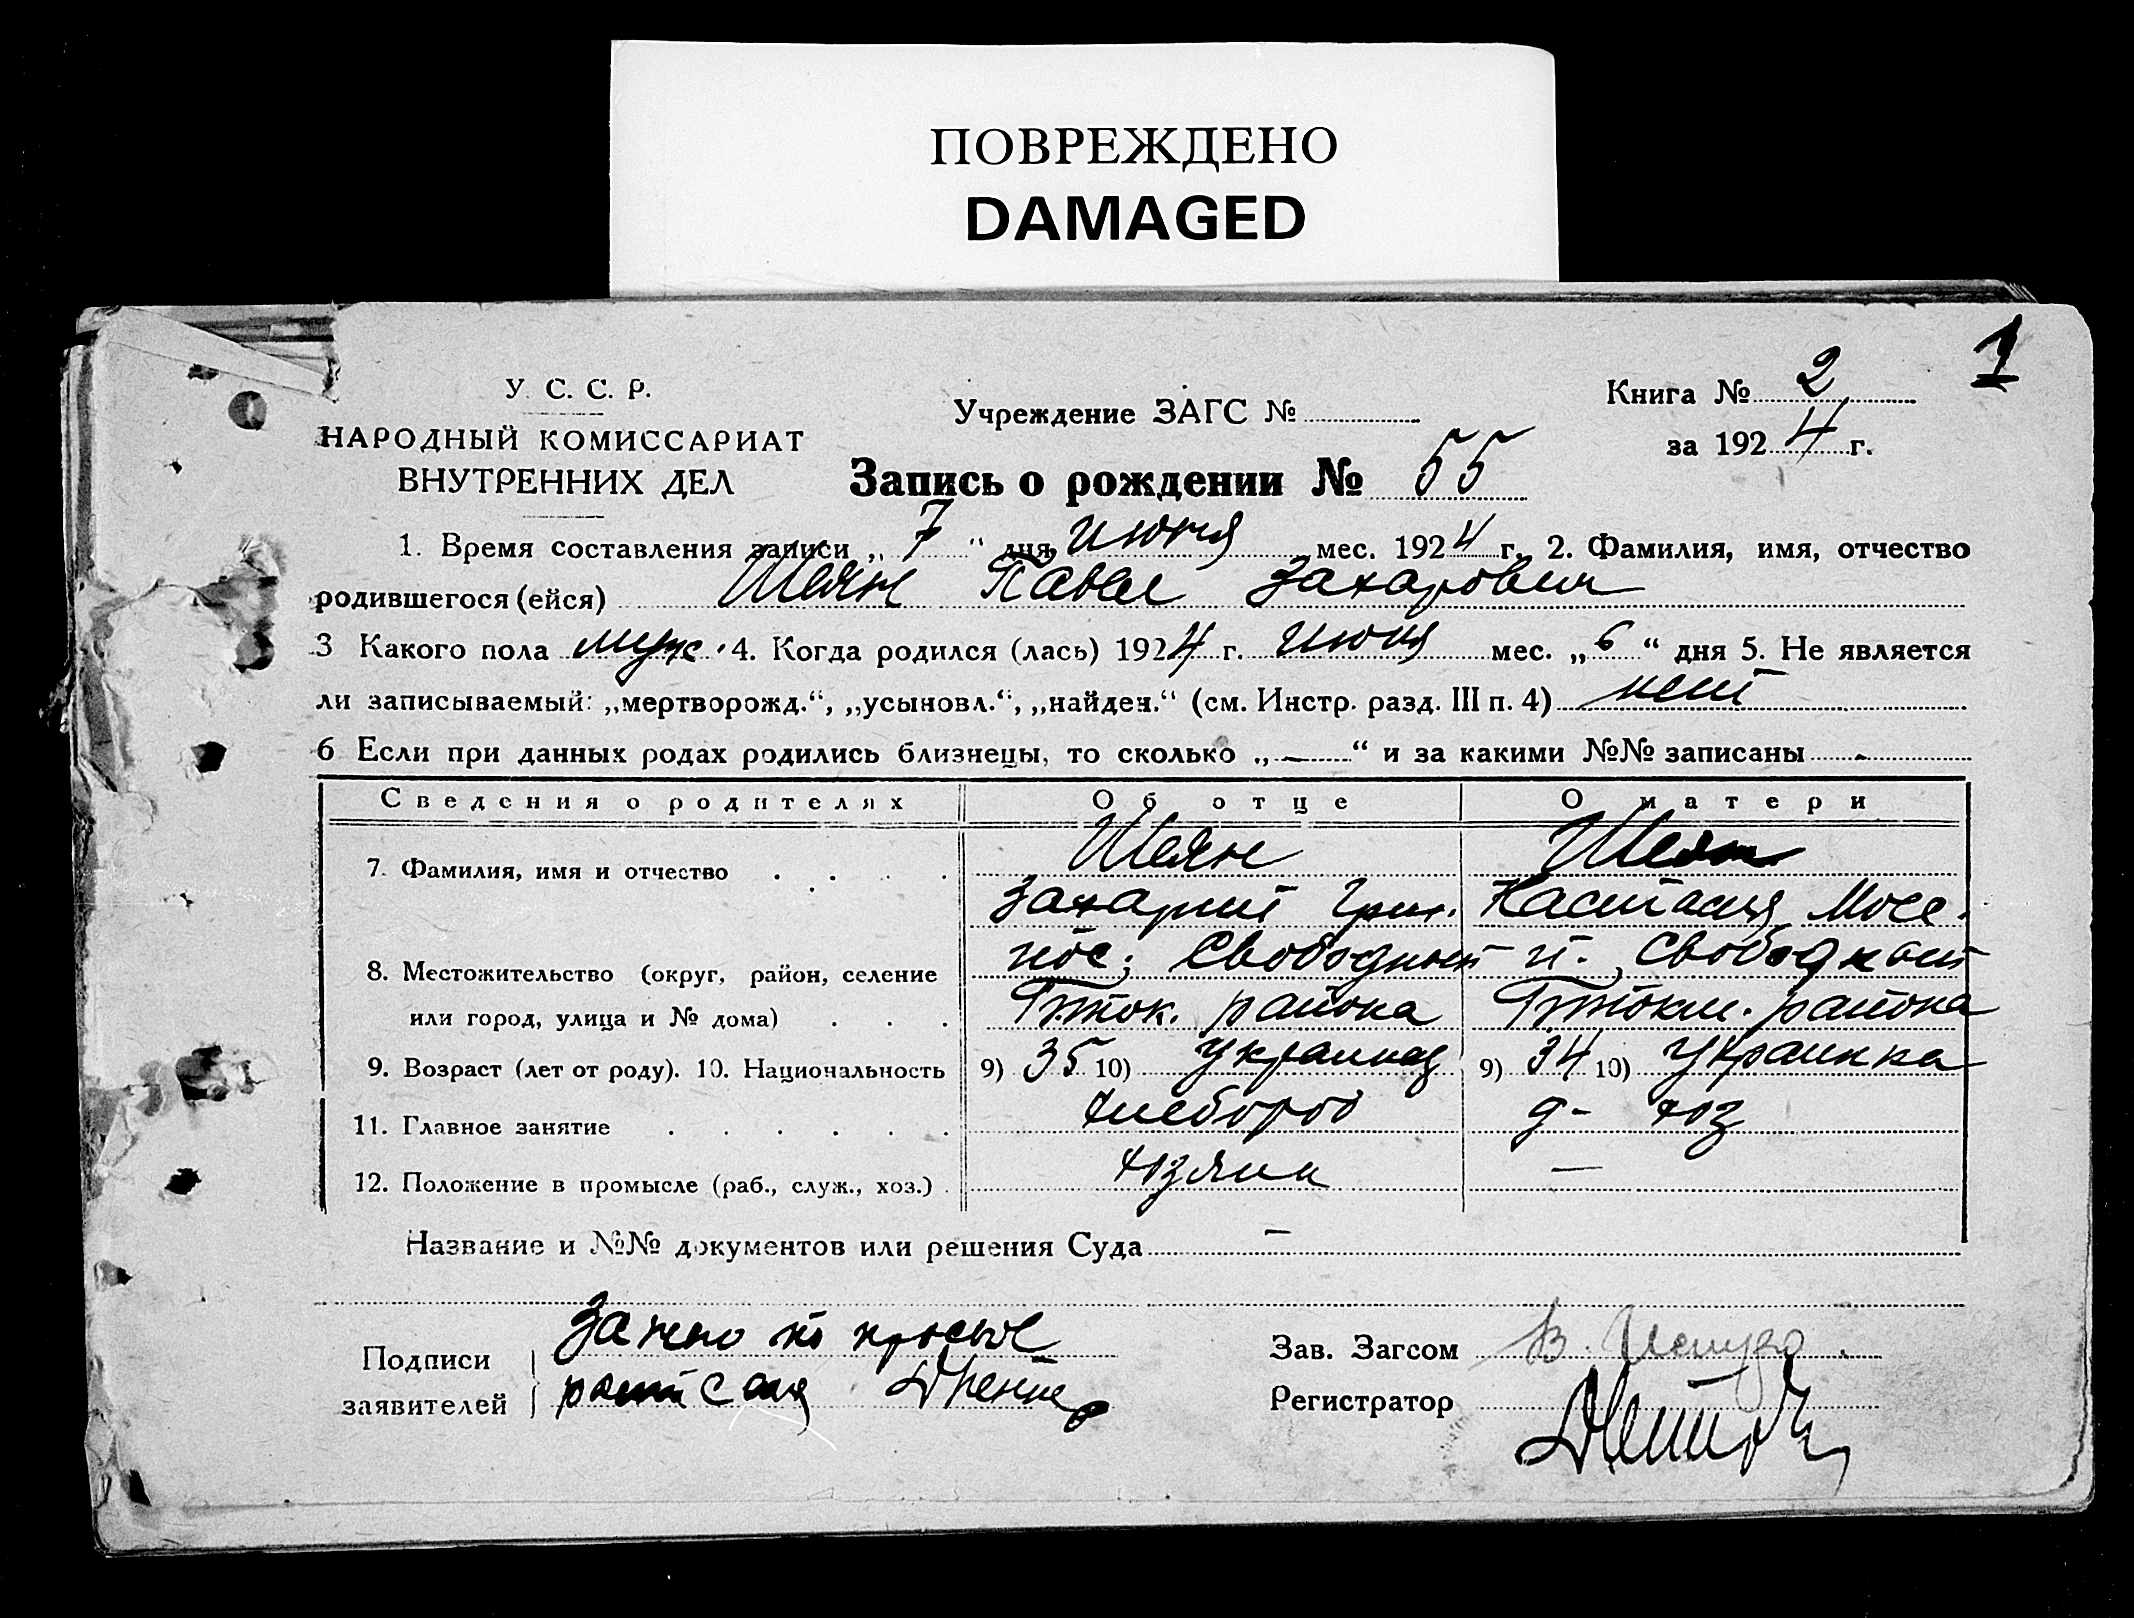 ПОВРЕЖДЕНО
DAMAGED
1
У. С. С. Р.
НАРОДНЫЙ КОМИССАРИАТ
ВНУТРЕННИХ ДЕЛ
Учреждение ЗАГС №
Книга № 2
за 1924 г.
Запись о рождении № 55
1. Время составления записи „ 7 “ дня июня мес. 1924 г. 2. Фамилия, имя, отчество
родившегося (ейся) Шеян Павел Захарович
3 Какого пола муж. 4. Когда родился (лась) 1924 г. июня мес. „ 6 “ дня 5. Не является
ли записываемый: „мертворожд.“, „усыновл.“, „найден.“ (см. Инстр. разд. III п. 4) нет
6 Если при данных родах родились близнецы, то сколько „ — “ и за какими №№ записаны -
Сведения о родителях Об отце О матери
7. Фамилия, имя и отчество Шеян Шеян
Захарий Григ. Настасия Мосе.
8. Местожительство (округ, район, селение пос. Свободный п. Свободный
или город, улица и № дома) района района
9. Возраст (лет от роду). 10. Национальность 9) 35 10) Украинец 9) 34 10) Украинка
11. Главное занятие хлебороб д-хоз
12. Положение в промысле (раб., служ., хоз.) хозяин —
Название и №№ документов или решения Суда —
Подписи
заявителей
За по просьбе
Зав. Загсом В.
Регистратор